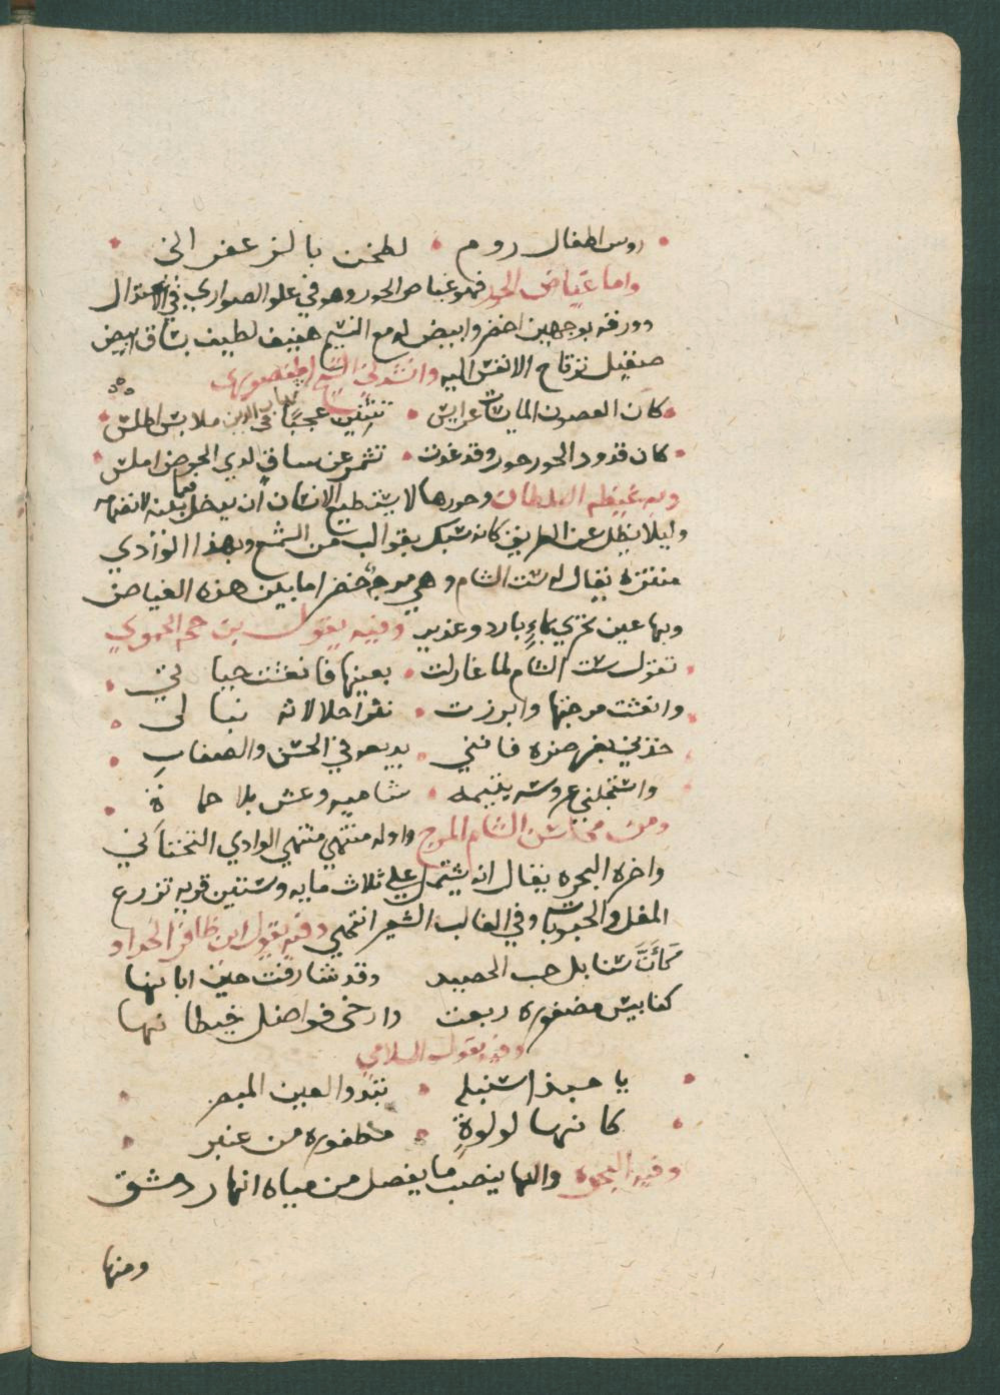 روس اطفال روم • لطخن بالزعفران
واما غياض الحور فهو غياض الحور وهو في علو الصواري في الاعتدال
وورقه بوجهين اخضر وابيض له مع النسيم هفيف لطيف بساق ابيض
صقيل ترتاح الانفس اليه وانشدني الشيخ
• كان الغصون المايسات عرايس • عجبا في ملابس اطلس
• كان قدود الحور حور وقد غدت • تشمر عن ساق لدي الحوض املس
وبه غيظة السلطان وحورها لا يستطيع الانسان ان يدخل
وليلا يظل عن الطريق كانه شبك بقوالب من الشمع وبهذا الوادي
منتزه يقال له ست الشام وهي مرجة خضرا ما بين هذه الغياض
وبها عين تجري بماء بارد وغدير وفيه يقول بن حجه الحموي
• تقول ست الشام لما غازلت • بعينها فانعشت حياتي •
وانعشت مرجتها وابرزت • نقرا حلا لانه نباتي •
خذني بغير ضره فانني • بديعة في الحسن والصفات •
واستجلني عروسة يتيمه • شاميه وعش بلا حماة •
ومن محاسن الشام المرج واوله منتهي منتهي الوادي التحتاني
واخره البحره يقال انه يشتمل علي ثلاث مايه وستين قريه تزرع
المقل والحبوبات وفي الغالب الشعير انتهي وفيه يقول ابن ظافر الحداد
كأنَّ سنابل حب الحصيد وقد شارفت حين ابانها
كنابيش مضفوره ربعت وارخى فواضل خيطانها
وفيه يقول السلامي
• يا حبذا سنبله • تبدوا لعين المبصر •
• كانها لولوة • مظفوره من عنبر •
وفيه البحره واليها ينصب ما يفضل من مياه انهار دمشق
ومنها